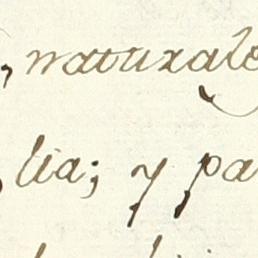 , naturale
lia; y pa